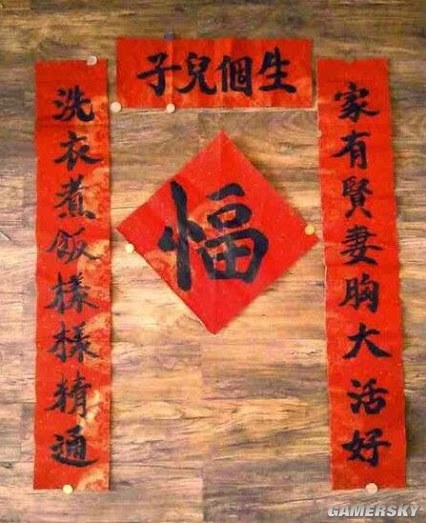 生個兒子
家有賢妻胸大活好
洗衣煮飯樣樣精通
福
GAMERSKY